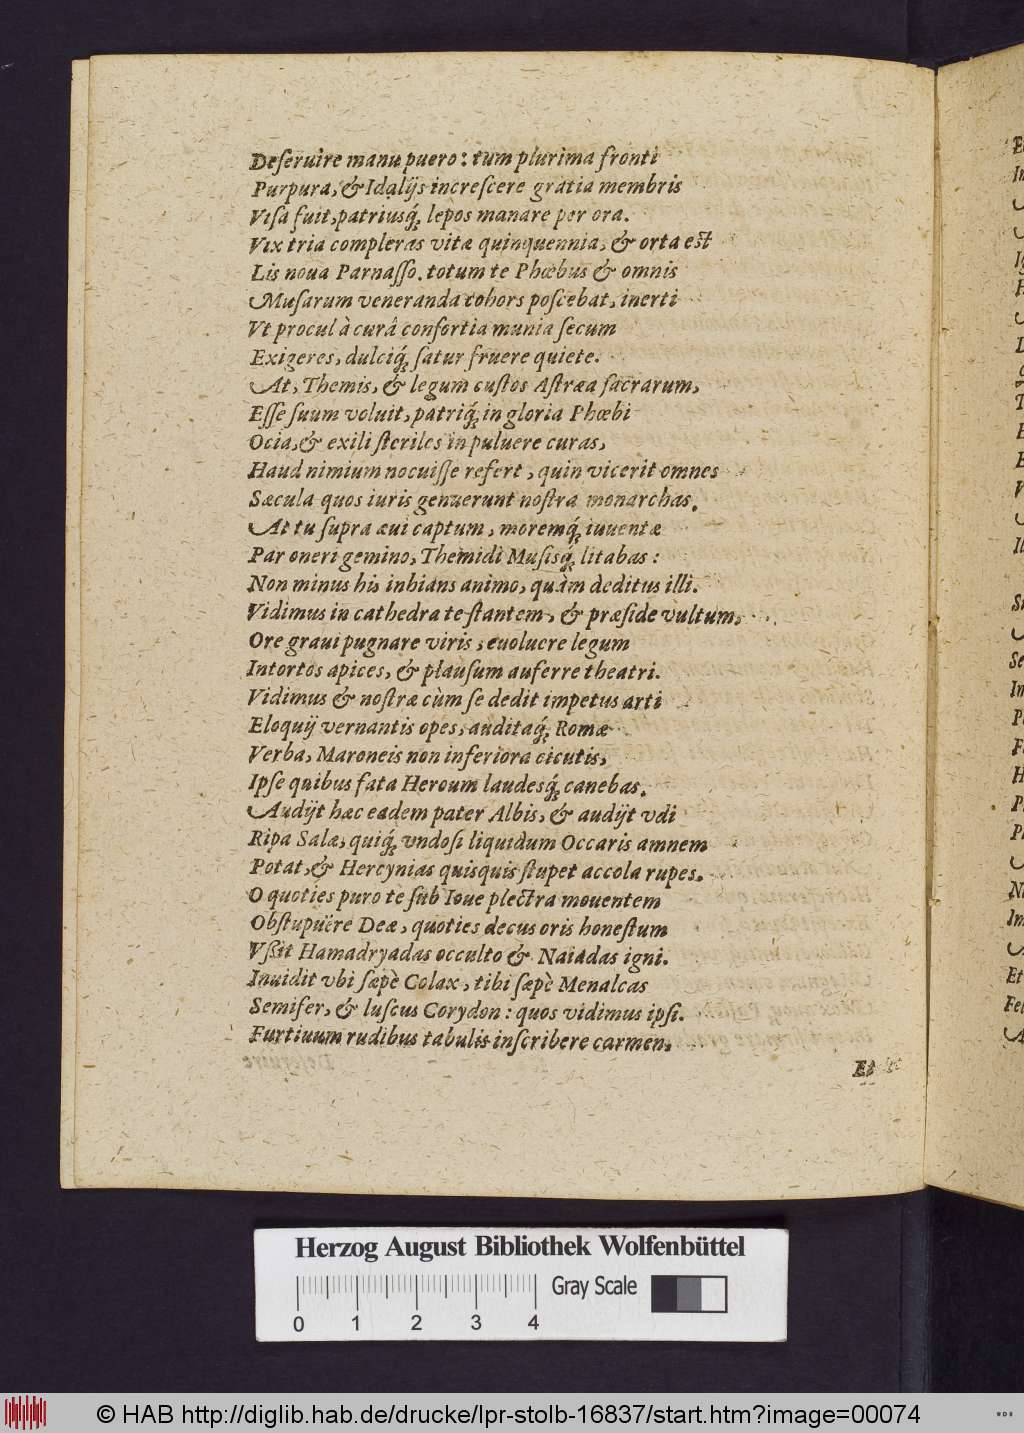 Deſeruire manu puero: tum plurima fronti
Purpura, & Idalijs increſcere gratia membris
Viſa fuit, patriusq́; lepos manare per ora.
Vix tria compleras vitæ quinquennia, & orta est
Lis noua Parnaſſo. totum te Phœbus & omnis
Muſarum veneranda cohors poſcebat, inerti
Vt procul à curâ conſortia munia ſecum
Exigeres, dulciq́; ſatur fruere quiete.
At, Themis, & legum cuſtos Aſtræa ſacrarum,
Eſſe ſuum voluit, patriq́; in gloria Phœbi
Ocia, & exili ſteriles in puluere curas,
Haud nimium nocuiſſe refert, quin vicerit omnes
Sæcula quos iuris genuerunt noſtra monarchas.
At tu ſupra æui captum, moremq́; iuuentæ
Par oneri gemino, Themidi Muſisq́; litabas:
Non minus his inhians animo, quàm deditus illi.
Vidimus in cathedra te ſtantem, & præſide vultum,
Ore graui pugnare viris, euoluere legum
Intortos apices, & plauſum auferre theatri.
Vidimus & noſtræ cùm ſe dedit impetus arti
Eloquij vernantis opes, auditaq́; Romæ
Verba, Maroneis non inferiora cicutis,
Ipſe quibus fata Heroum laudesq́; canebas.
Audijt hæc eadem pater Albis, & audijt vdi
Ripa Salæ, quiq́; vndoſi liquidum Occaris amnem
Potat, & Hercynias quisquis ſtupet accola rupes.
O quoties puro te ſub Ioue plectra mouentem
Obſtupuêre Deæ, quoties decus oris honeſtum
Vſsit Hamadryadas occulto & Naiadas igni.
Inuidit vbi ſæpè Colax, tibi ſæpè Menalcas
Semifer, & luſcus Corydon: quos vidimus ipſi.
Furtiuum rudibus tabulis inſcribere carmen,
Et
Herzog August Bibliothek Wolfenbüttel
Gray Scale
0 1 2 3 4
© HAB http://diglib.hab.de/drucke/lpr-stolb-16837/start.htm?image=00074